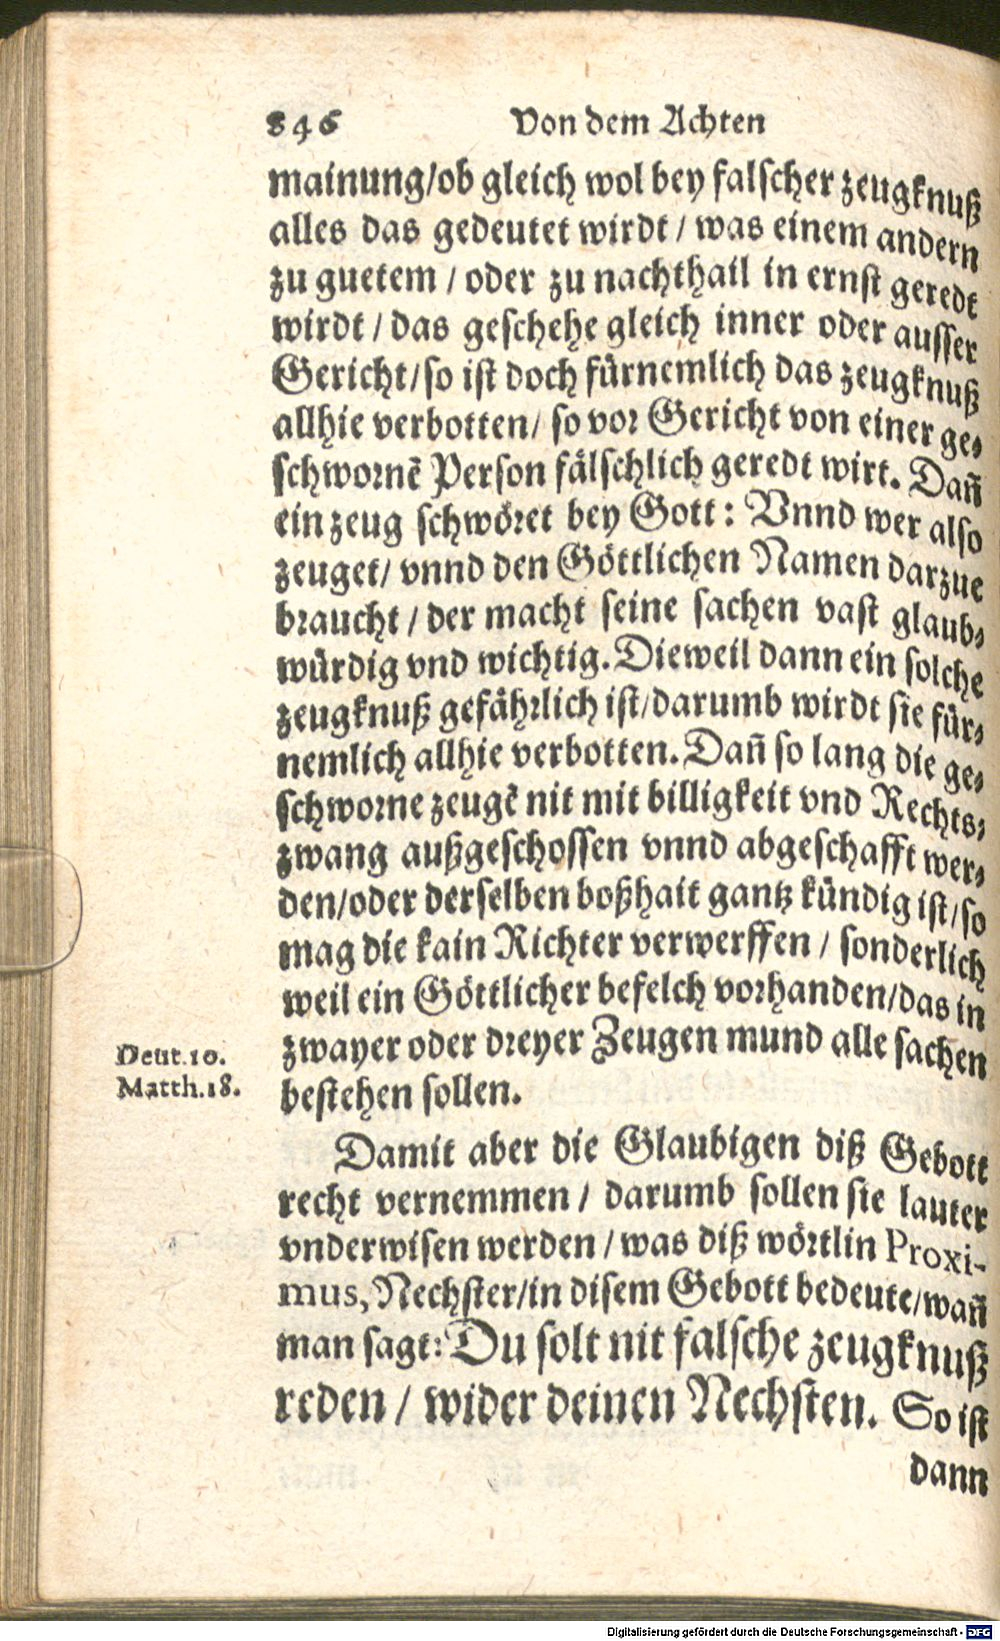 846 Von dem Achten
mainung/ob gleich wol bey falscher zeugknuß
alles das gedeutet wirdt / was einem andern
zu guetem / oder zu nachthail in ernst geredt
wirdt / das geschehe gleich inner oder ausser
Gericht/so ist doch fürnemlich das zeugknuß
allhie verbotten/ so vor Gericht von einer ge⸗
schwornē Person fälschlich geredt wirt. Dañ
ein zeug schwöret bey Gott: Vnnd wer also
zeuget/ vnnd den Göttlichen Namen darzue
braucht / der macht seine sachen vast glaub⸗
würdig vnd wichtig. Dieweil dann ein solche
zeugknuß gefährlich ist/darumb wirdt sie für⸗
nemlich allhie verbotten. Dañ so lang die ge⸗
schworne zeugē nit mit billigkeit vnd Rechts⸗
zwang außgeschossen vnnd abgeschafft wer⸗
den/oder derselben boßhait gantz kündig ist/so
mag die kain Richter verwerffen / sonderlich
weil ein Göttlicher befelch vorhanden/das in
zwayer oder dreyer Zeugen mund alle sachen
bestehen sollen.
Deut.10.
Matth.18.
Damit aber die Glaubigen diß Gebott
recht vernemmen / darumb sollen sie lauter
vnderwisen werden / was diß wörtlin Proxi-
mus, Nechster/in disem Gebott bedeute/wañ
man sagt: Du solt nit falsche zeugknuß
reden / wider deinen Nechsten. So ist
dann
Digitalisierung gefördert durch die Deutsche Forschungsgemeinschaft - DFG